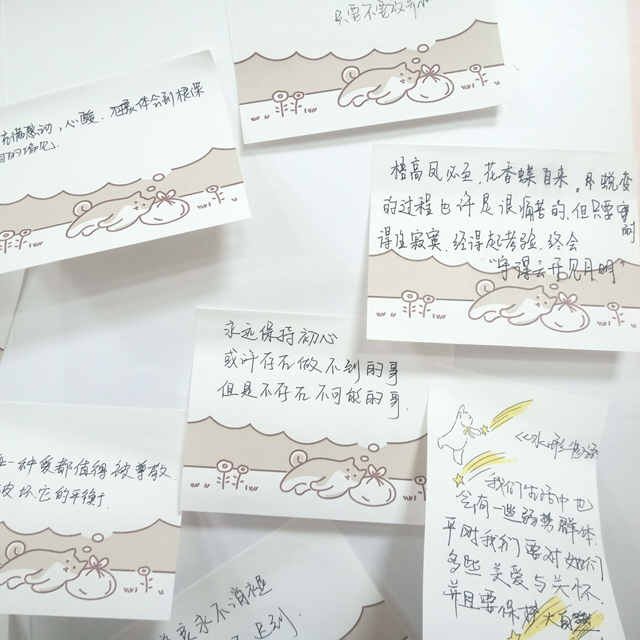 只要不要放弃
感动，心酸．
栖高凤必至，花香蝶自来。蜕变
的过程也许是很痛苦的，但只要耐
得住寂寞，经得起考验，终会
"守得云开见月明"
永远保持初心
或许存在做不到的事
但是不存在不可能的事．
一种爱都值得被尊敬
破坏它的平衡
《水形物语
我们生活中也
会有一些弱势群体
平时我们要对她们
多些关爱与关怀．
并且要保持
永不消逝
迟到．